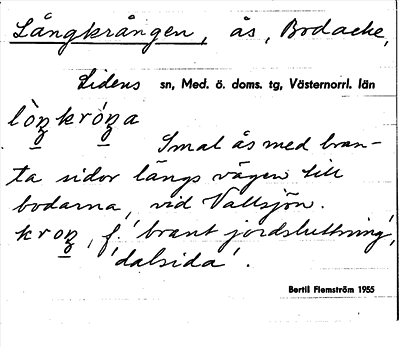 Långkrången, ås, Bodacke,
Lidens sn, Med. ö. doms. tg, Västernorrl. län
lòŋkróŋa
Smal ås med bran-
ta sidor längs vägen till
bodarna, vid Vallsjön.
kroŋ, f. 'brant jordsluttning',
'dalsida'.
Bertil Flemström 1955